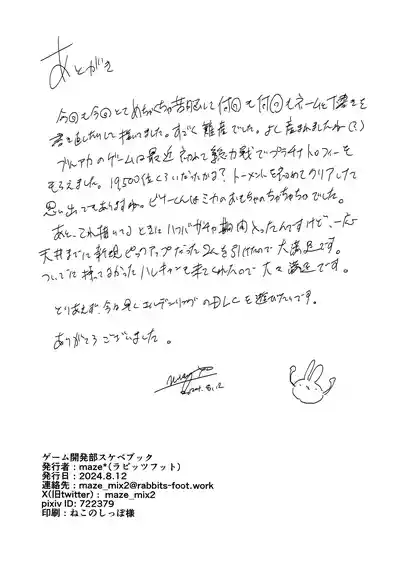 あとがき
今回も今回とてめちゃくちゃ苦戦して何回も何回もネームと下書きを
書き直したりして描いてました。すごく難産でした。よく産まれましたね(?)
ブルアカのゲームは最近初めて総力戦でプラチナトロフィーを
もらえました。19,500位くらいだったかな?トーメントを初めてクリアしてて
思い出でもありますね。ビナーくんはミカのおもちゃのちゃちゃちゃでした。
あと、これ描いてるときにハフバガチャ期間入ったんですけど、一応
天井までに新規ピックアップだった2人を引けたので大満足です。
ついでに持ってなかったハレキャンも来てくれたので大々満足です。
とりあえず、今は早くエルデンリングのDLCを遊びたいです。
ありがとうございました。
maze
2024.8.12
ゲーム開発部スケベブック
発行者:maze*(ラビッツフット)
発行日:2024.8.12
連絡先:maze_mix2@rabbits-foot.work
X(旧twitter): maze_mix2
pixiv ID: 722379
印刷:ねこのしっぽ様